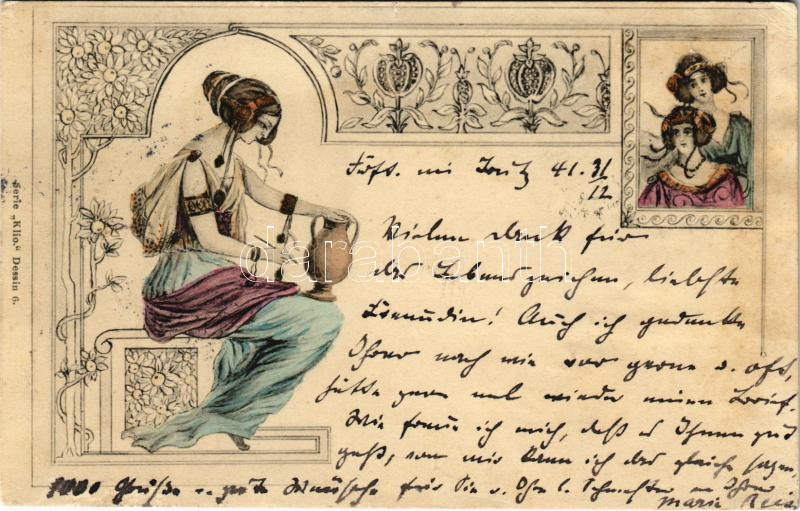 Serie „Klio.“ Dessin 6.
41. 31/12
Vielen Dank für
das Lebenszeichen, liebste
Freundin! Auch ich gedenke
Ihrer nach wie vor gerne u. oft,
hätte gern mal wieder einen Brief.
Wie freue ich mich, daß es Ihnen gut
geht, von mir kann ich das gleiche sagen.
1000 Grüße u. gute Wünsche für Sie u. Ihre l. Schwester
Marie
darabanth